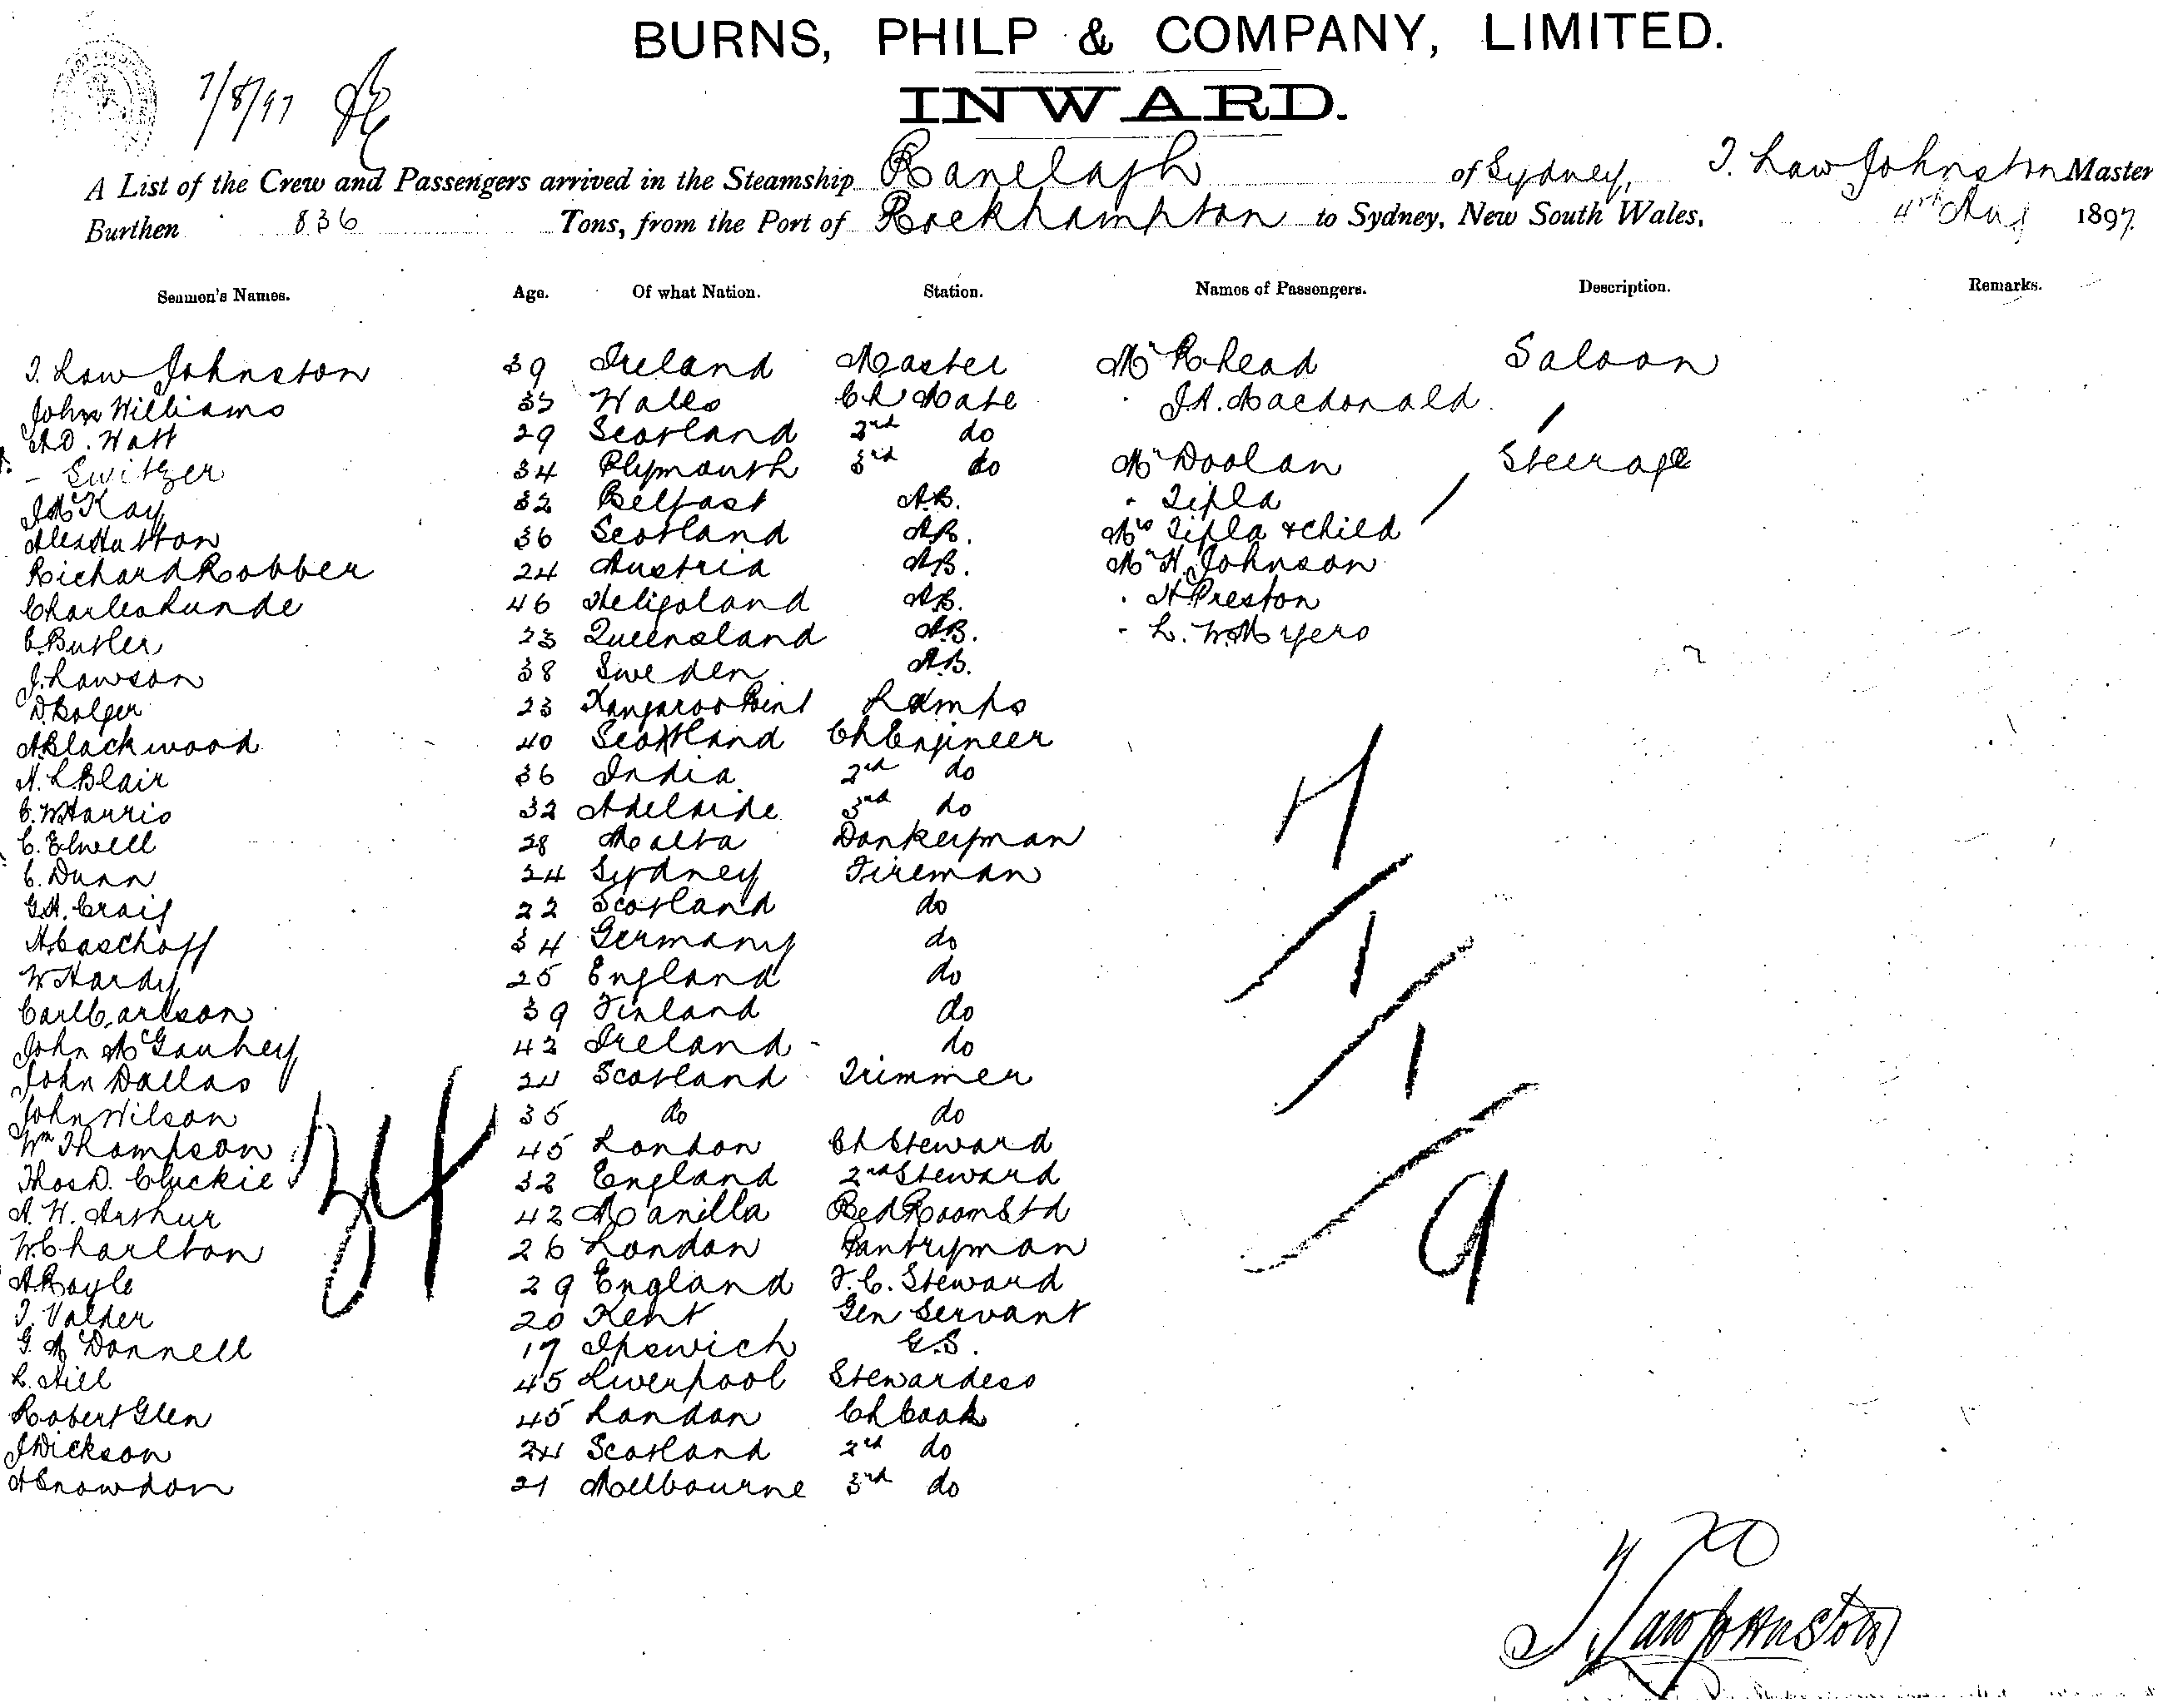 BURNS, PHILP & COMPANY, LIMITED.
7/8/97
INWARD.
A List of the Crew and Passengers arrived in the Steamship Ranelagh of Sydney, T. Law Johnston Master
Burthen 836 Tons, from the Port of Rockhampton to Sydney, New South Wales, 4th Aug 1897
Seamen's Names. Age. Of what Nation. Station. Names of Passengers. Description. Remarks.
T. Law Johnston 39 Ireland Master Mr Rhead Saloon
John Williams Wales Ch Mate " J.A. Macdonald
A.D. Watt 29 Scotland 2nd do
- Switzer 34 Plymouth 3rd do Mr Doolan Steerage
J McKay 32 Belfast A.B. " Tipla
Alex Hutton 36 Scotland A.B. Mrs Tipla & child
Richard Robber 24 Austria A.B. Mr H. Johnson
Charles Lunde 46 Heligoland A.B. " H Preston
E. Butler 23 Queensland A.B. " L. W. Myers
J. Lawson 38 Sweden A.B.
D. Bolger 23 Kangaroo Point Lamps
A Blackwood 40 Scotland Ch Engineer
N. L. Blair 36 India 2nd do
C. W Harris 32 Adelaide 3rd do
C. Elwell 28 Malta Donkeyman
C. Dunn 24 Sydney Fireman
G.A. Craig 22 Scotland do
H. Caschoff 34 Germany do
W Hardy 25 England do
Carl Carlson 39 Finland do
John McGauhey 42 Ireland do
John Dallas 24 Scotland Trimmer
John Wilson 35 do do
Wm Thompson 45 London Ch Steward
Thos D. Cluckie 32 England 2nd Steward
A. W. Arthur 42 Manilla Bed Room Std
W. Charlton 26 London Pantryman
A. Boyle 29 England F. C. Steward
T. Valder 20 Kent Gen Servant
G. McDonnell 17 Ipswich G.S.
L. Hill 45 Liverpool Stewardess
Robert Glen 45 London Ch Cook
J Dickson 24 Scotland 2nd do
A Snowdon 21 Melbourne 3rd do
34
4/1/1/9
T. Law Johnston